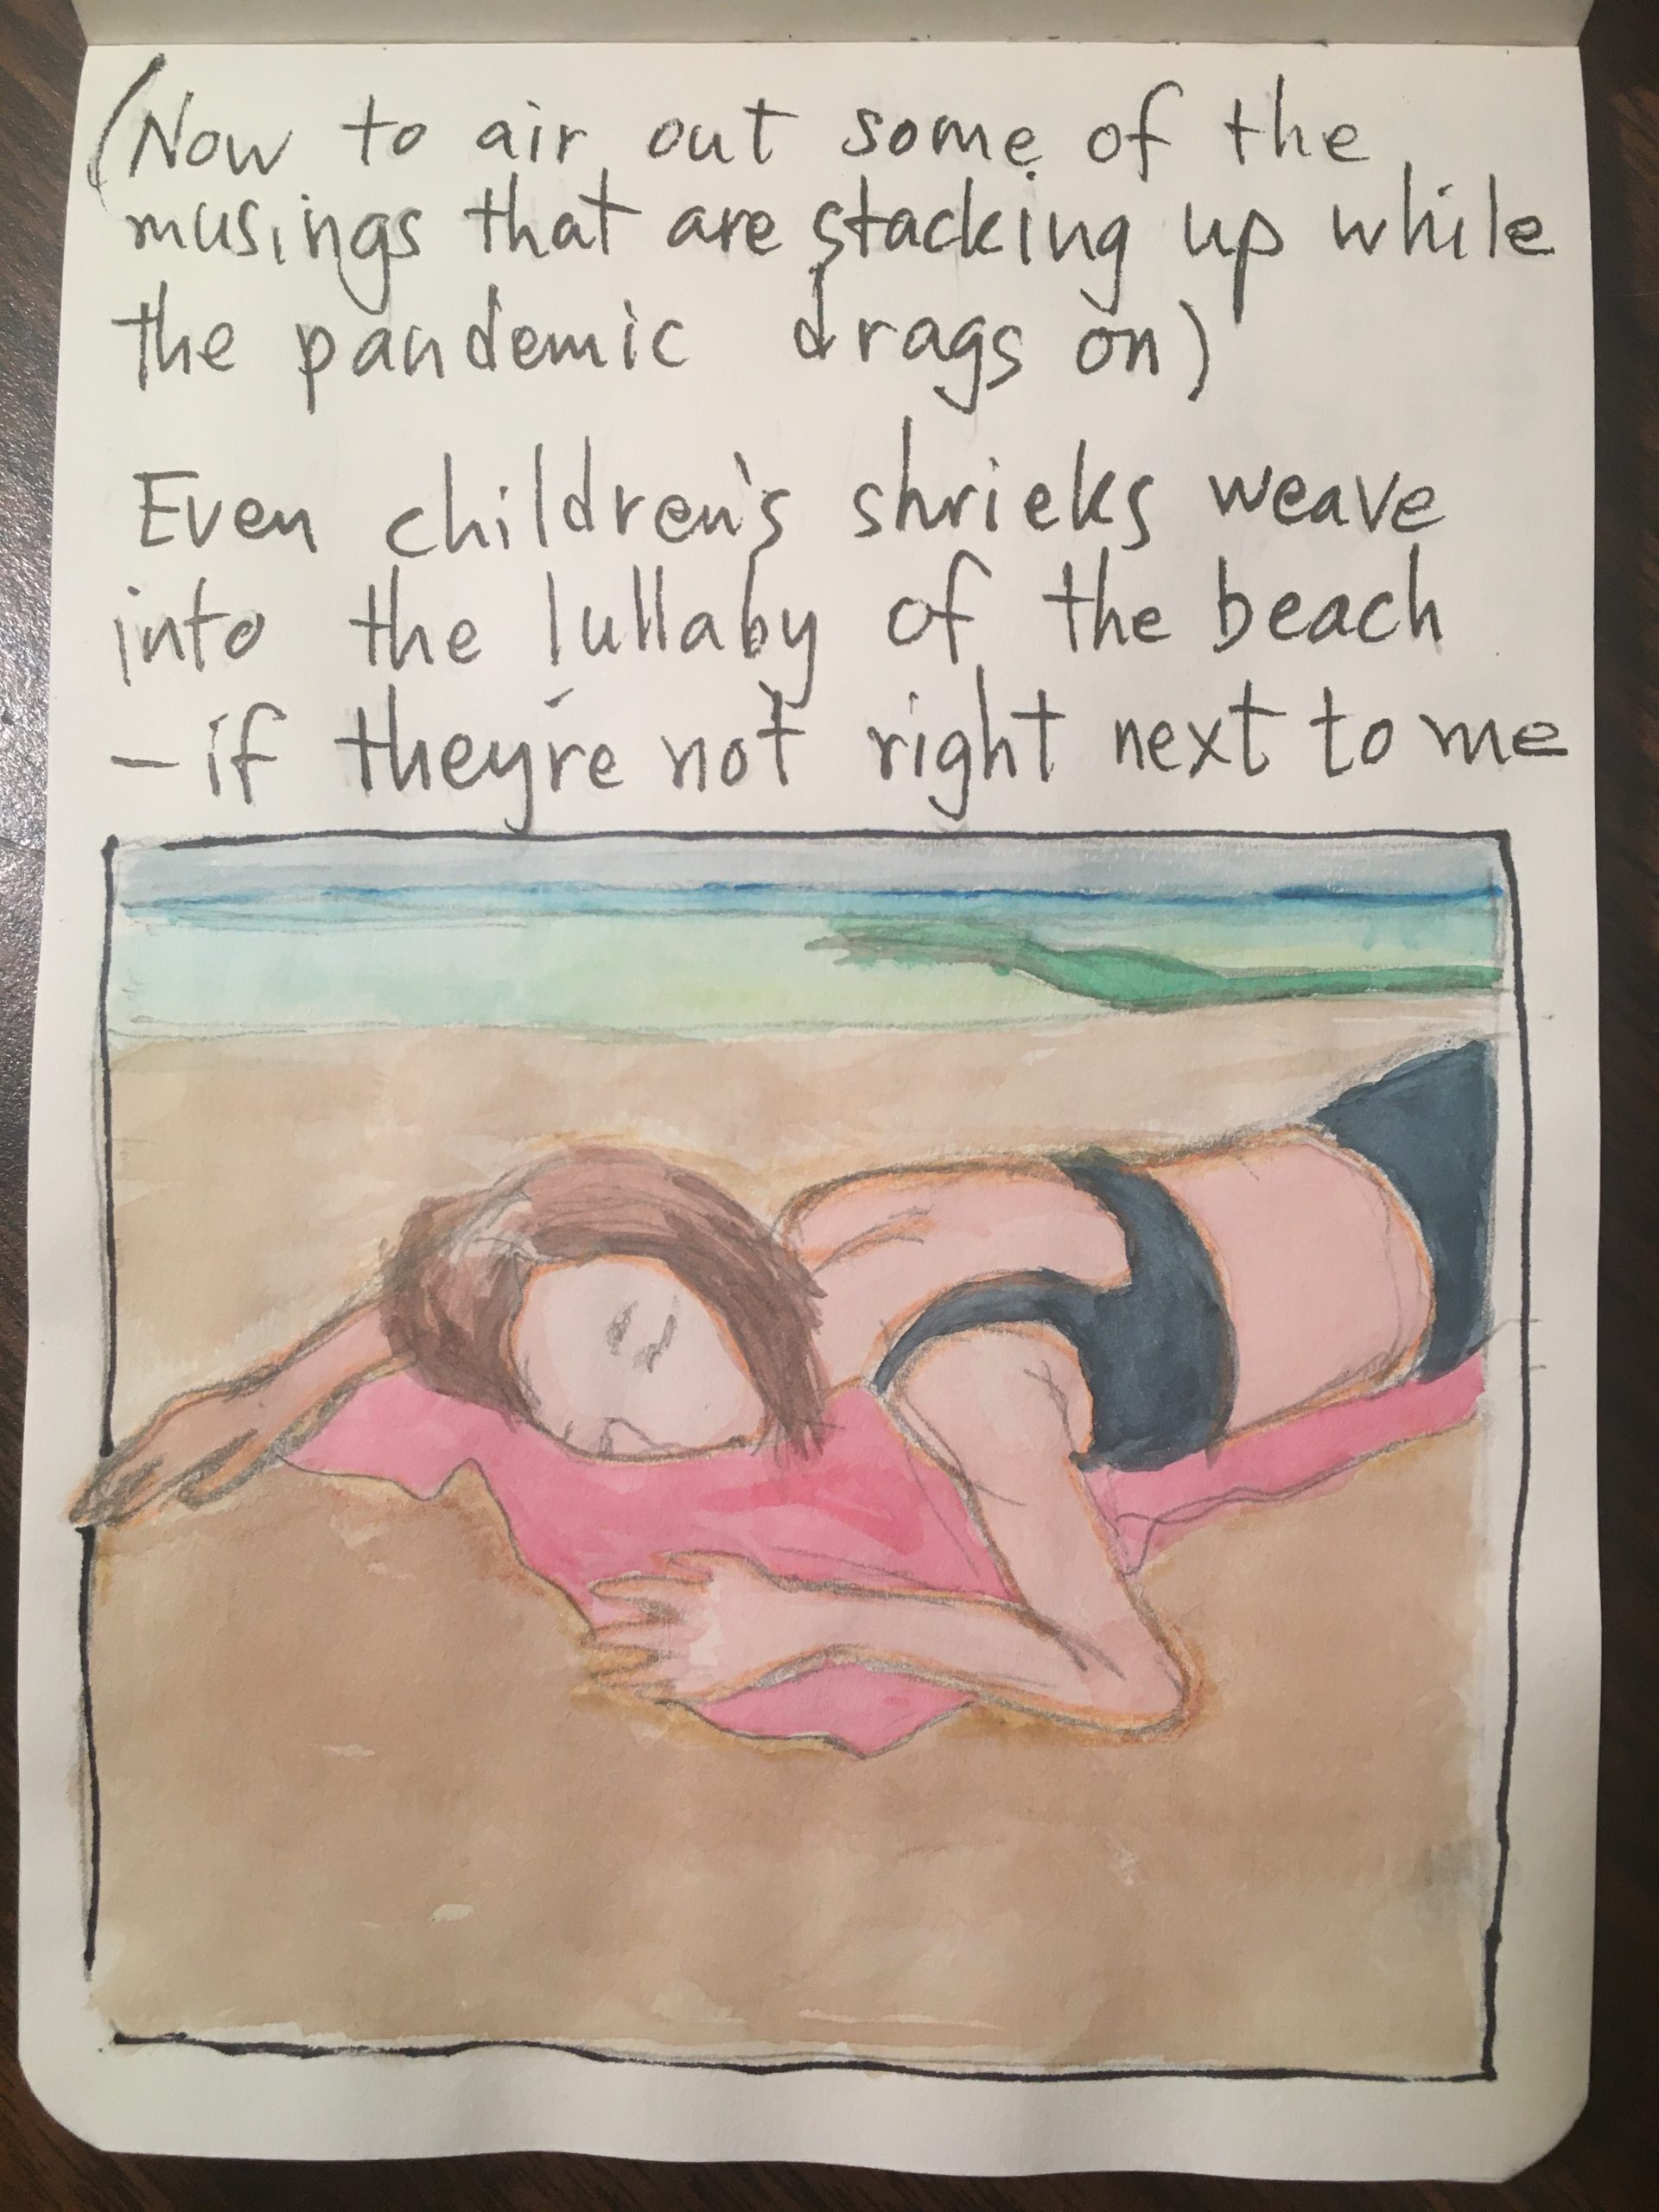 (Now to air out some of the
musings that are stacking up while
the pandemic drags on)
Even children's shrieks weave
into the lullaby of the beach
- if they're not right next to me